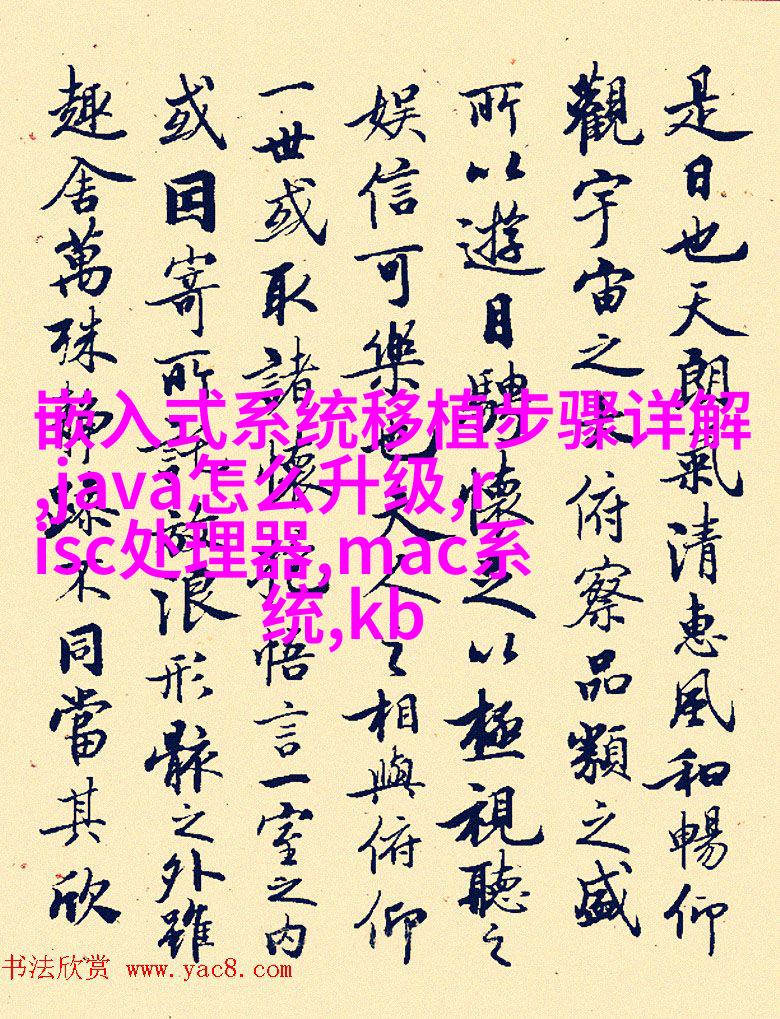 是日也天朗氣清惠風和暢仰
觀宇宙之大俯察品類之盛
所以遊目騁懷足以極視聽之
娛信可樂也夫人之相與俯仰
一世或取諸懷抱悟言一室之内
或因寄所託放浪形骸之外雖
趣舍萬殊靜躁不同當其欣
嵌入式系统移植步骤详解
,java怎么升级,r
isc处理器,mac系
统,kb
书法欣赏 www.yac8.com